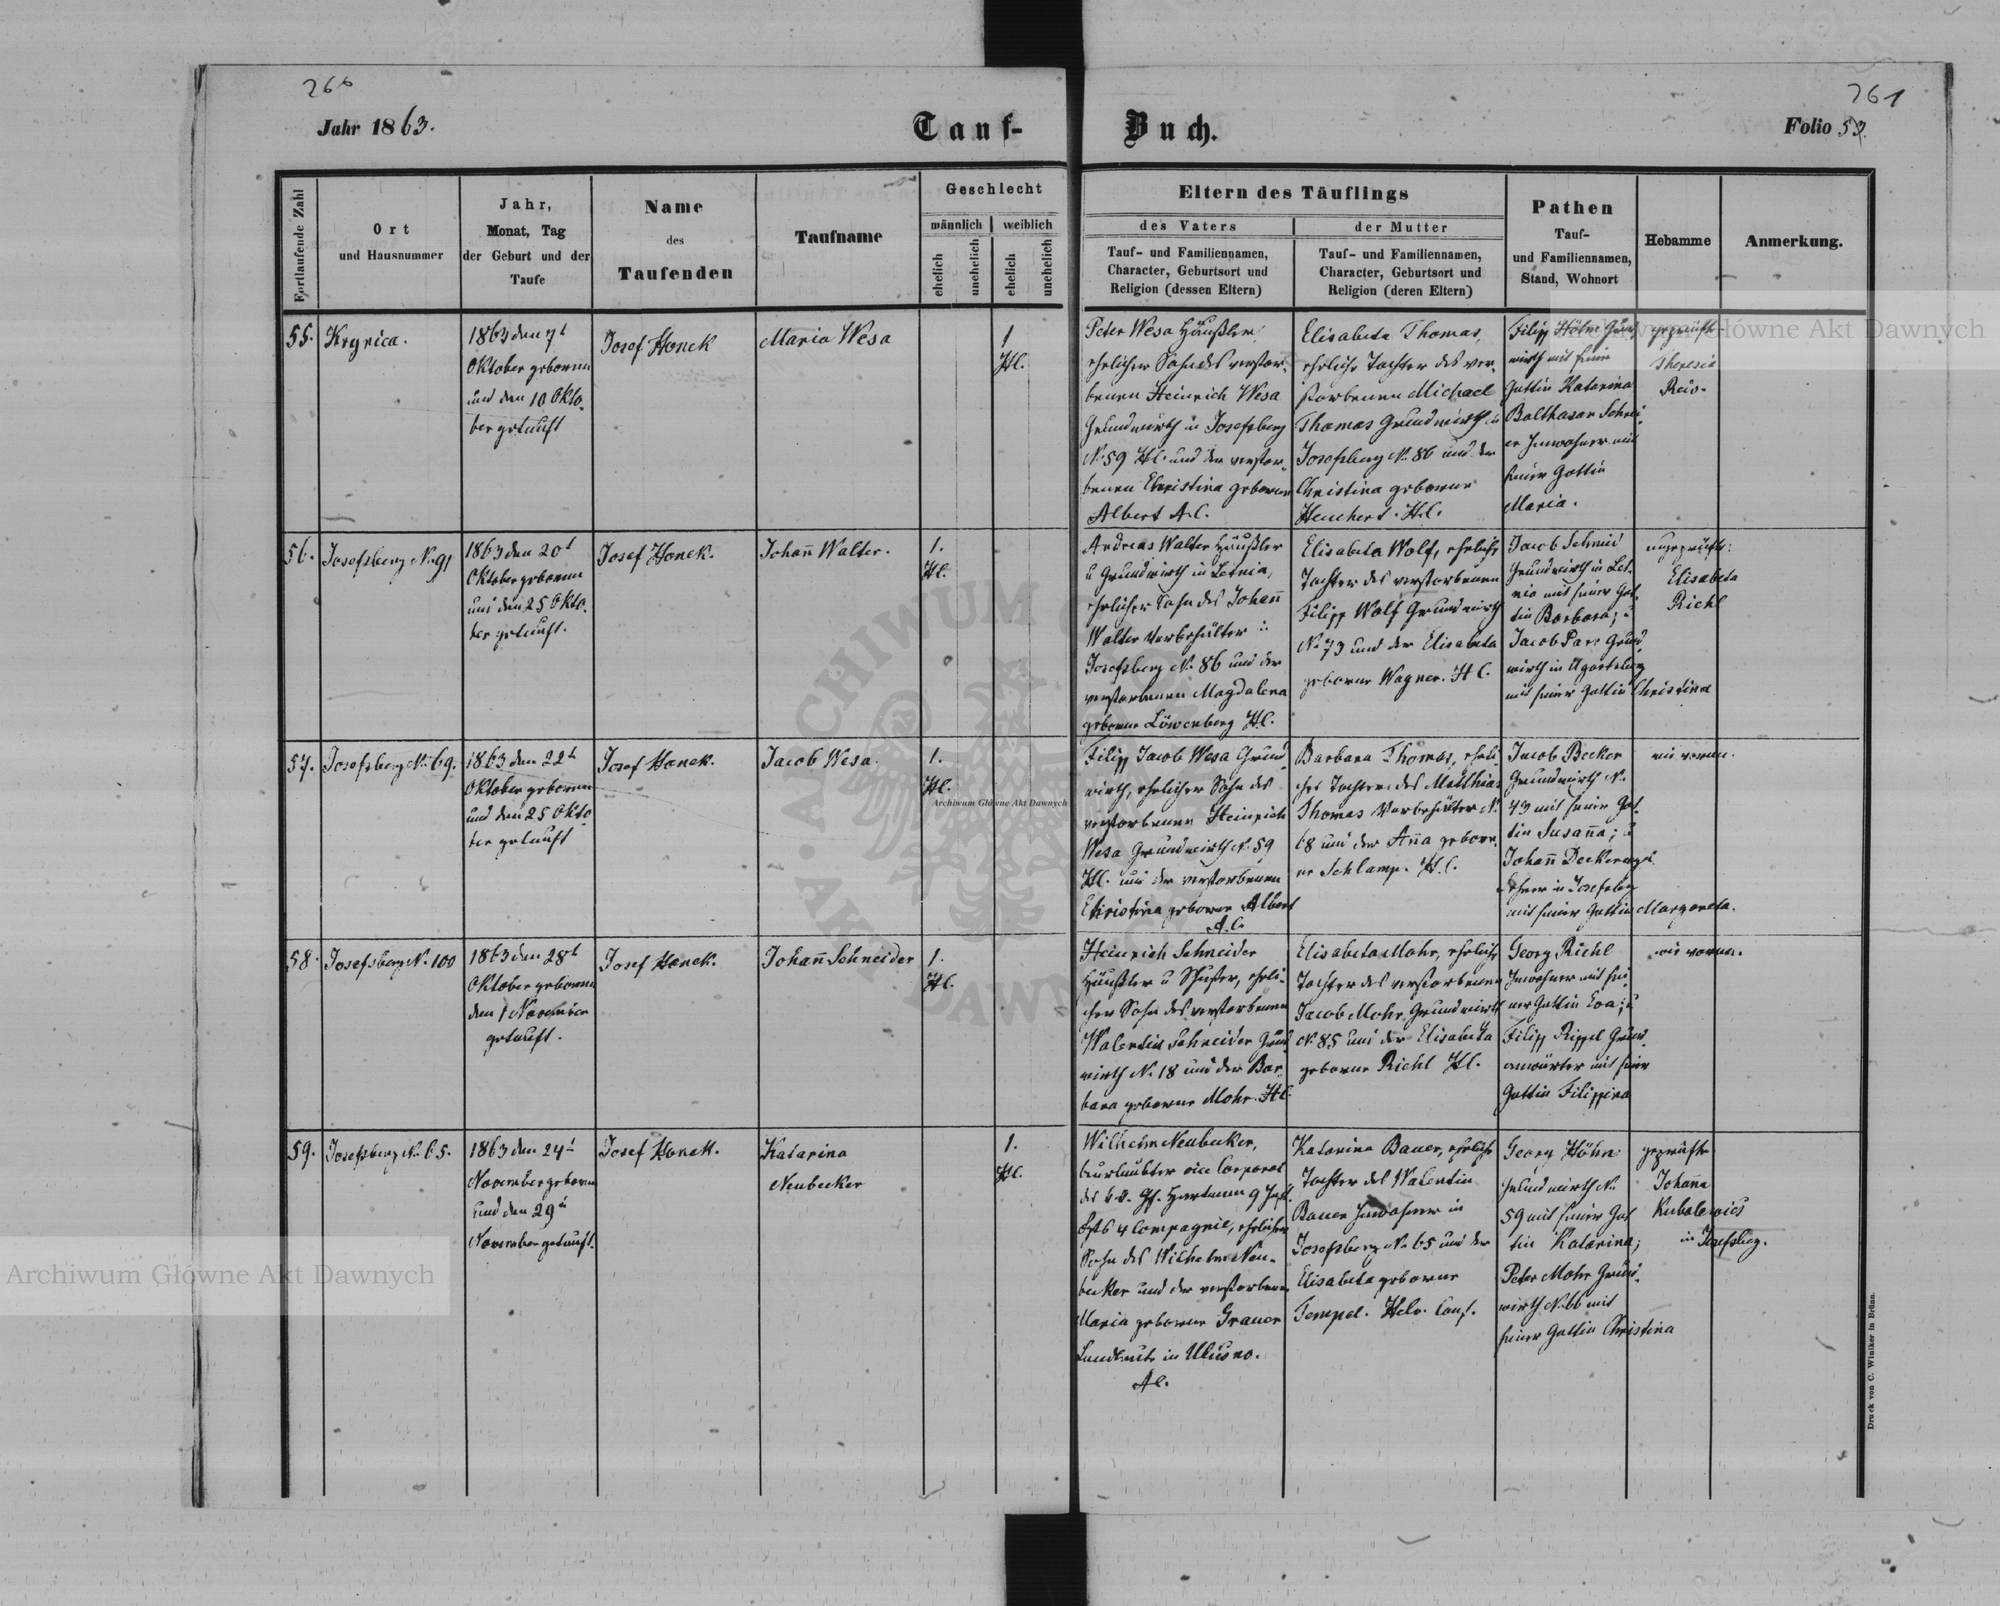 266
261
Jahr 1863.
Tauf-
Buch.
Folio 53.
Fortlaufende Zahl
Ort
und Hausnummer
Jahr,
Monat, Tag
der Geburt und der
Taufe
Name
des
Taufenden
Taufname
Geschlecht
männlich
weiblich
ehelich
unehelich
ehelich
unehelich
Eltern des Täuflings
des Vaters
Tauf- und Familiennamen,
Character, Geburtsort und
Religion (dessen Eltern)
der Mutter
Tauf- und Familiennamen,
Character, Geburtsort und
Religion (deren Eltern)
Pathen
Tauf-
und Familiennamen,
Stand, Wohnort
Hebamme
Anmerkung.
55.
Krynica.
1863 den 7t
Oktober geboren
und den 10 Okto-
ber getauft
Josef Honek
Maria Wesa
1
Hl.
Peter Wesa Häußler,
ehelicher Sohn des verstor-
benen Heinrich Wesa
Grundwirth in Josefsberg
No 59 Hl. und der verstor-
benen Christina geborene
Albert A.C.
Elisabeta Thomas,
eheliche Tochter des ver-
storbenen Michael
Thomas Grundwirth in
Josefsberg No 86 und der
Christina geborne
Heuchert. H.C.
Filipp Höhn Grund
wirth mit seine
Gattin Katarina
Balthasar Schrei-
er Inwohner mit
seiner Gattin
Maria.
geprüfte
Theresia
Reis.
56.
Josefsberg No 91
1863 den 20t
Oktober geboren
und den 25 Okto-
ber getauft.
Josef Honek.
Johan̄ Walter.
1.
Hl.
Andreas Walter Häußler
u Grundwirth in Letnia,
ehelicher Sohn des Johan̄
Walter Vorbehälter in
Josefsberg No 86 und der
verstorbenen Magdalena
geborne Löwenberg Hl.
Elisabeta Wolf, eheliche
Tochter des verstorbenen
Filipp Wolf Grundwirth
No 73 und der Elisabeta
geborne Wagner. H C.
Jacob Schmid
Grundwirth in Let-
nia mit seiner Gat-
tin Barbara; u
Jacob Parr Grund-
wirth in Ugartsberg
mit seiner Gattin Christina
ungeprüfte:
Elisabeta
Richl
57.
Josefsberg No 69.
1863 den 22t
Oktober geboren
und den 25 Okto-
ber getauft
Josef Honek.
Jacob Wesa.
1.
Hl.
Filipp Jacob Wesa Grund-
wirth, ehelicher Sohn des
verstorbenen Heinrich
Wesa Grundwirth No 59
Hl. und der verstorbenen
Christina geborne Albert
A.C.
Barbara Thomas, eheli-
che Tochter des Matthias
Thomas Vorbehälter No
68 und der An̄a gebor-
ne Schlamp. H.C.
Jacob Becker
Grundwirth No
43 mit seiner Gat-
tin Susan̄a; u
Johan̄ Decker
Lehrer in Josefsberg
mit seiner Gattin Margareta.
wie voran.
58.
Josefsberg No 100
1863 den 28t
Oktober geboren
den 1 November
getauft.
Josef Honek.
Johan̄ Schneider
1.
Hl.
Heinrich Schneider
Häußler u Schuster, eheli-
cher Sohn des verstorbenen
Walentin Schneider Grund-
wirth No 18 und der Bar-
bara geborne Mohr. Hl.
Elisabeta Mohr, eheliche
Tochter des verstorbenen
Jacob Mohr Grundwirth
No 85 und der Elisabeta
geborne Richl Hl.
Georg Richl
Inwohner mit sei-
ner Gattin Eva; u
Filipp Rippel Grund-
anwärter mit seiner
Gattin Filippina
wie voran.
59.
Josefsberg No 65.
1863 den 24t
November geboren
und den 29t
November getauft.
Josef Honek.
Katarina
Neubecker
1.
Hl.
Wilhelm Neubecker,
beurlaubter vice Corporal
des Gf. Hartmann 9 Inft.
4 Compagnie, ehelicher
Sohn des Wilhelm Neu-
becker und der verstorbenen
Maria geborne Grauer
Landleute in Ulicsno.
A C.
Katarina Bauer, eheliche
Tochter des Walentin
Bauer Inwohner in
Josefsberg No 65 und der
Elisabeta geborne
Tempel. Helv. Conf.
Georg Höhn
Grundwirth No
59 mit seiner Gat
tin Katarina;
Peter Mohr Grund-
wirth No 66 mit
seiner Gattin Christina
geprüfte
Johan̄a
Kubalewics
in Josefsberg.
Druck von C. Winiker in Brünn.
Archiwum Główne Akt Dawnych
Archiwum Główne Akt Dawnych
Archiwum Główne Akt Dawnych